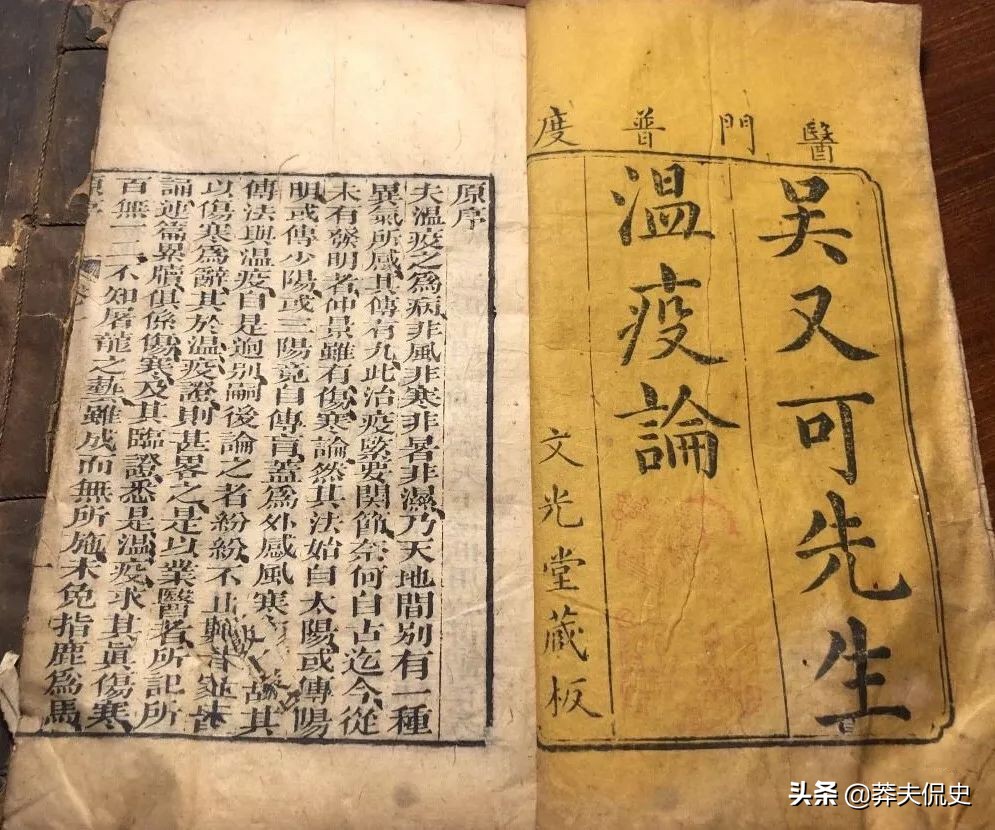 醫門普度
吳又可先生
温疫論
文光堂藏板
原序
夫温疫之爲病非風非寒非暑非濕乃天地間別有一種
異氣所感其傳有九此治疫緊要関節奈何自古迄今從
未有發明者仲景雖有傷寒論然其法始自太陽或傳陽
明或傳少陽或三陽竟自傳胃蓋爲外感風寒故其
傳法與温疫自是逈別嗣後論之者紛紛不止數十家皆
以傷寒爲辭其於温疫證則甚畧之是以業醫者所記所
誦連篇累牘俱係傷寒及其臨證悉是温疫求其眞傷寒
百無一二不知屠龍之藝雖成而無所施未免指鹿爲馬
头条 @莽夫侃史